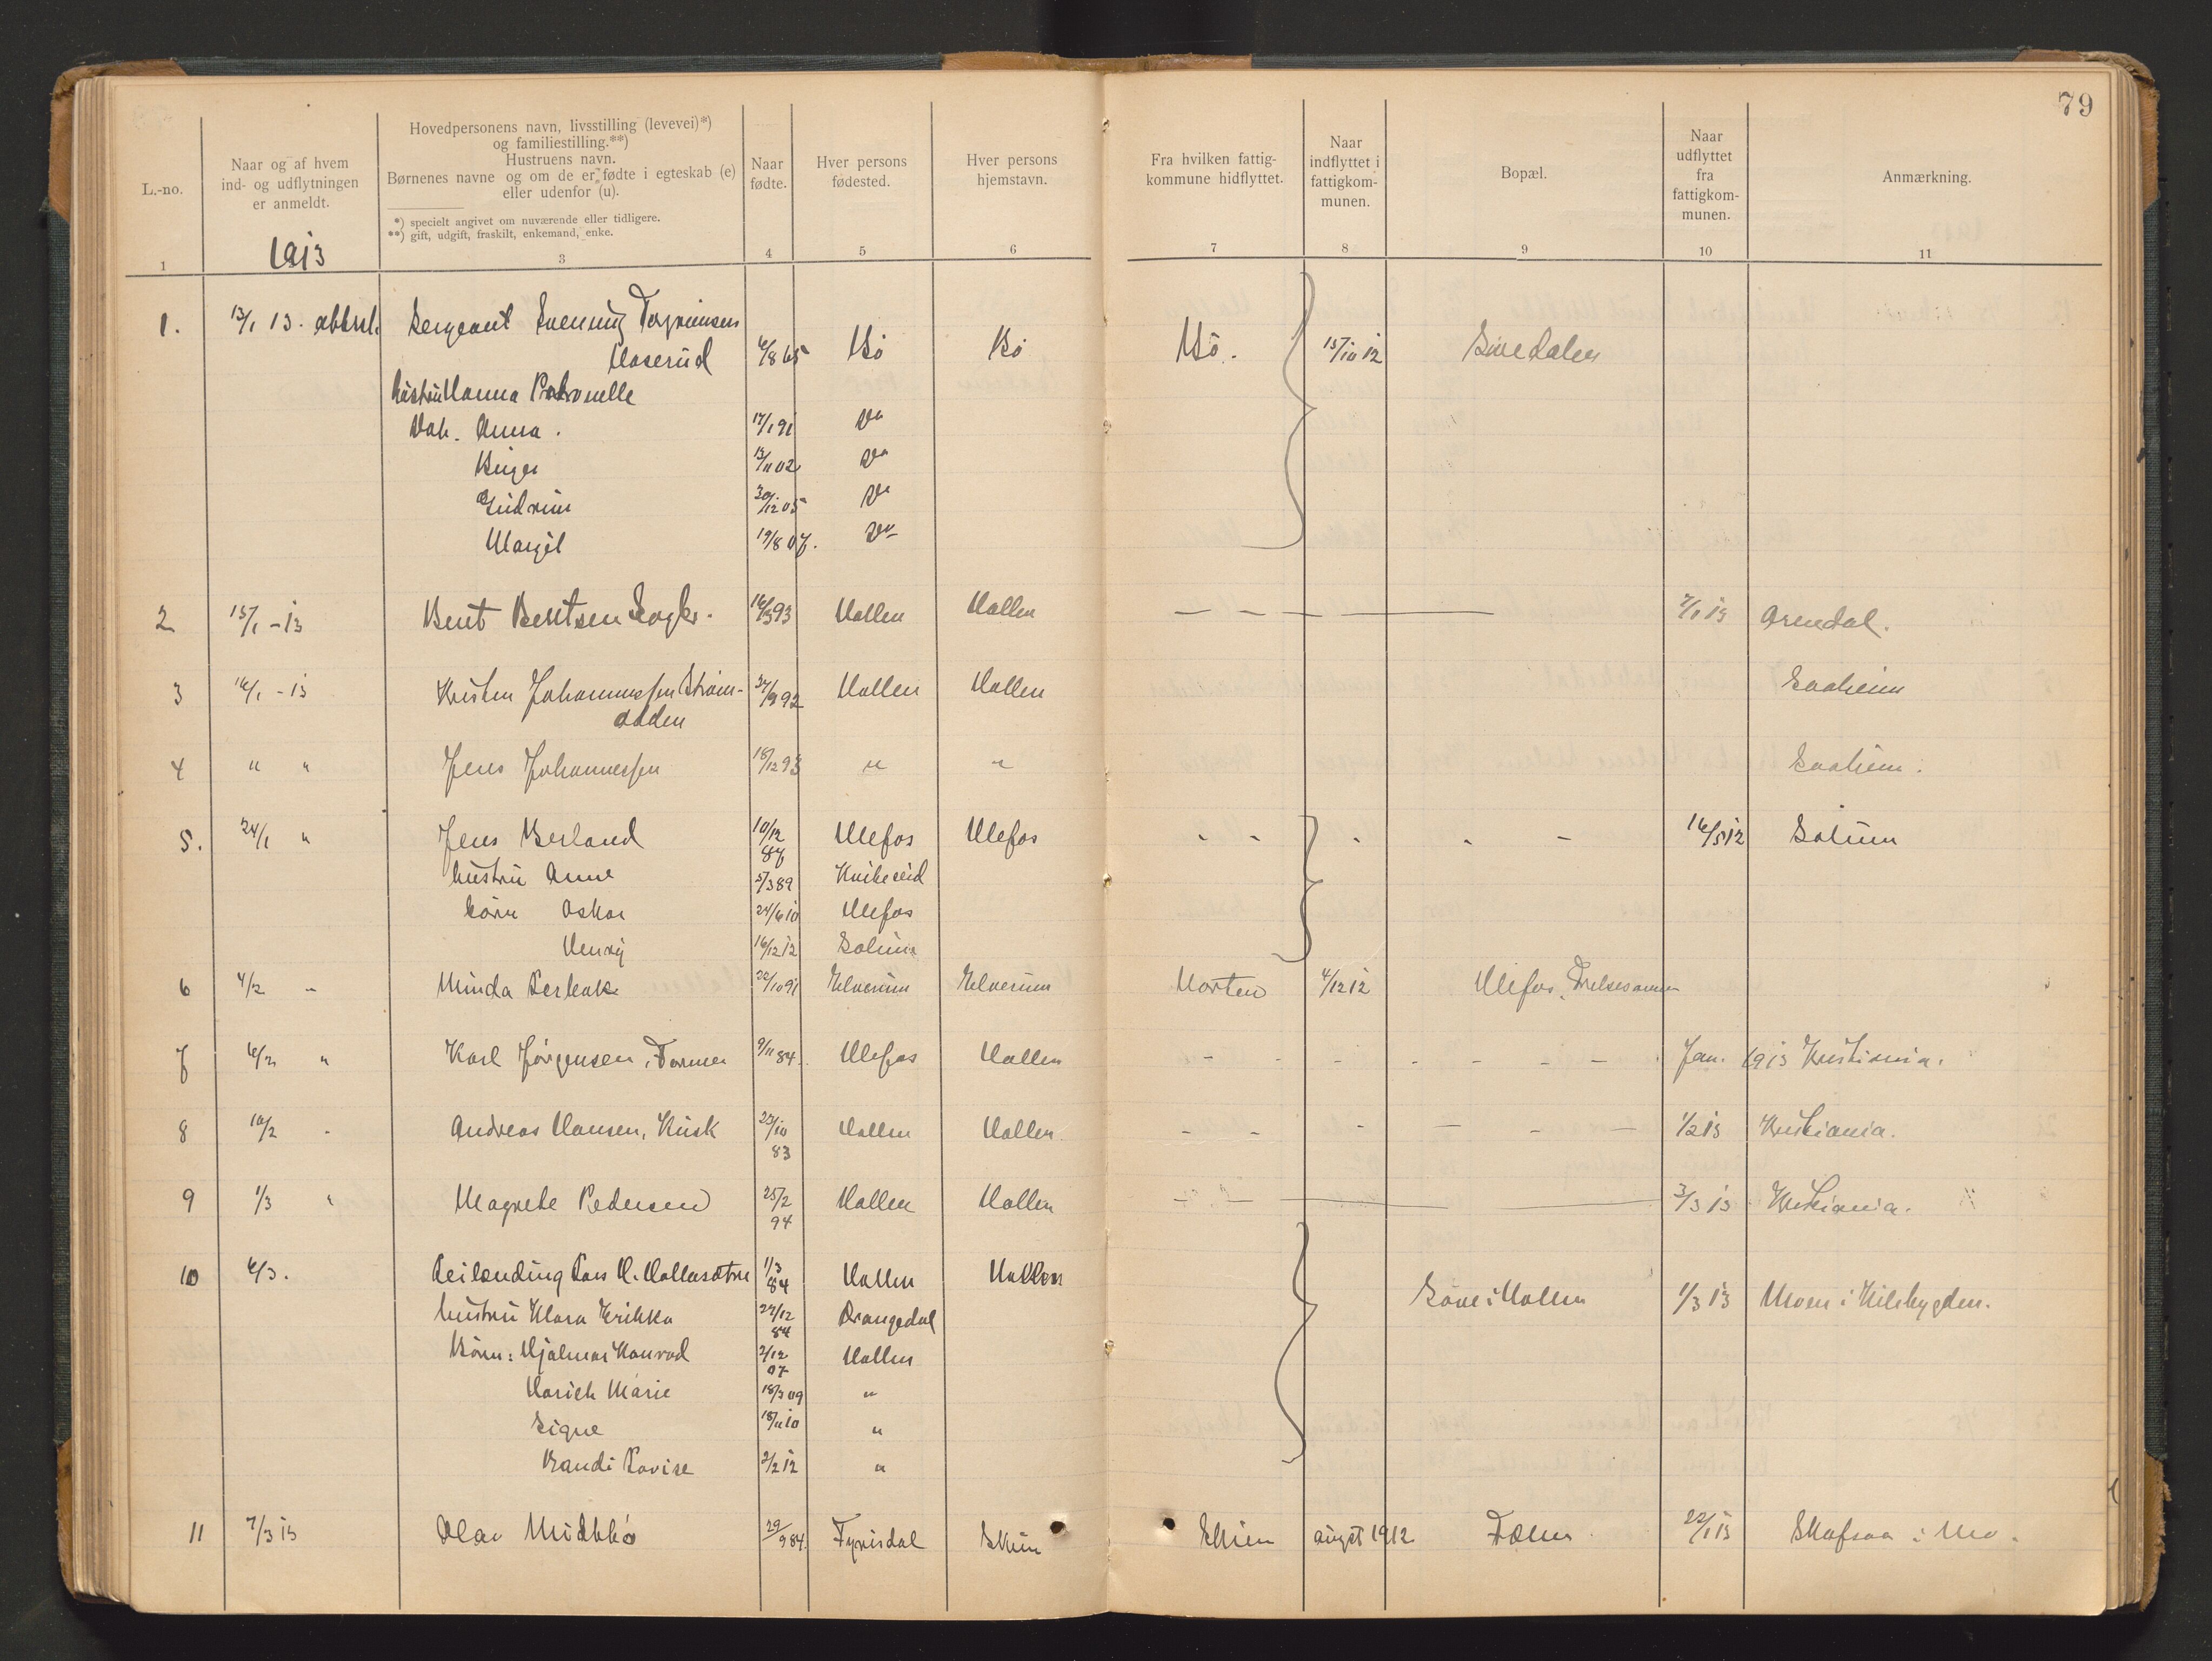 79
L.-no.
Naar og af hvem
ind- og udflytningen
er anmeldt.
Hovedpersonens navn, livsstilling (levevei)*)
og familiestilling.**)
Hustruens navn.
Børnenes navne og om de er fødte i egteskab (e)
eller udenfor (u).
*) specielt angivet om nuværende eller tidligere.
**) gift, udgift, fraskilt, enkemand, enke.
Naar
fødte.
Hver persons
fødested.
Hver persons
hjemstavn.
Fra hvilken fattig-
kommune hidflyttet.
Naar
indflyttet i
fattigkom-
munen.
Bopæl.
Naar
udflyttet
fra
fattigkom-
munen.
Anmærkning.
1913
1 3 4 5 6 7 8 9 10 11
1. 13/1 13. Sergeant
6/8 65 Bø Bø Bø. 15/10 12
hustru Hanna
Anna. 17/1 91 Do
Birger 13/11 02 Do
Gudrun 30/12 05 Do
Margit 19/8 07. Do
2 15/1 - 13 Bent Bentsen 93 Hollen Hollen — — — 7/1 13 Arendal.
3 16/1 - 13 Kristen Johannessen Strøm- 92 Hollen Hollen Saaheim
dden
4 " " Jens Johannessen 18/12 93 " " Saaheim.
5. 24/1 " Jens Berland 10/12 87 Ulefos Ulefos - - - - - 16/5 12 Solum
hustru Anne 5/3 89 Kviteseid
børn Oskar 24/6 10 Ulefos
Henry 16/12 12 Solum
6 4/2 " Minda 22/10 91 Elverum Elverum Horten 4/12 12 Ulefos, Frelsesarmeen
7 6/2 " Karl Jørgensen, Former 9/11 84. Ulefos Hollen - - - - - - - Jan. 1913 Kristiania.
8 10/2 " Andreas Hansen, Kusk 83 Hollen Hollen - - - - - - 1/2 13 Kristiania.
9 1/3 " Magrete Pedersen 25/2 94 Hollen Hollen — — — 3/3 13 Kristiania.
10 6/3. Leilending Lars H. Hollasætre 1/3 84 Hollen Hollen Søve i Hollen 1/3 13 Moen i Kilebygden.
hustru Klara Erikka 27/12 84 Drangedal
Børn: Hjalmar Konrad 2/12 07 Hollen
Marie 18/3 09 "
Signe 18/11 10 "
Randi Lovise 2/2 12 "
11 7/3 13 Olav Midtbø 29/9 84. Fyrisdal Skien Skien augst 1912 Fæhn 22/1 13 Skafsaa i Mo.